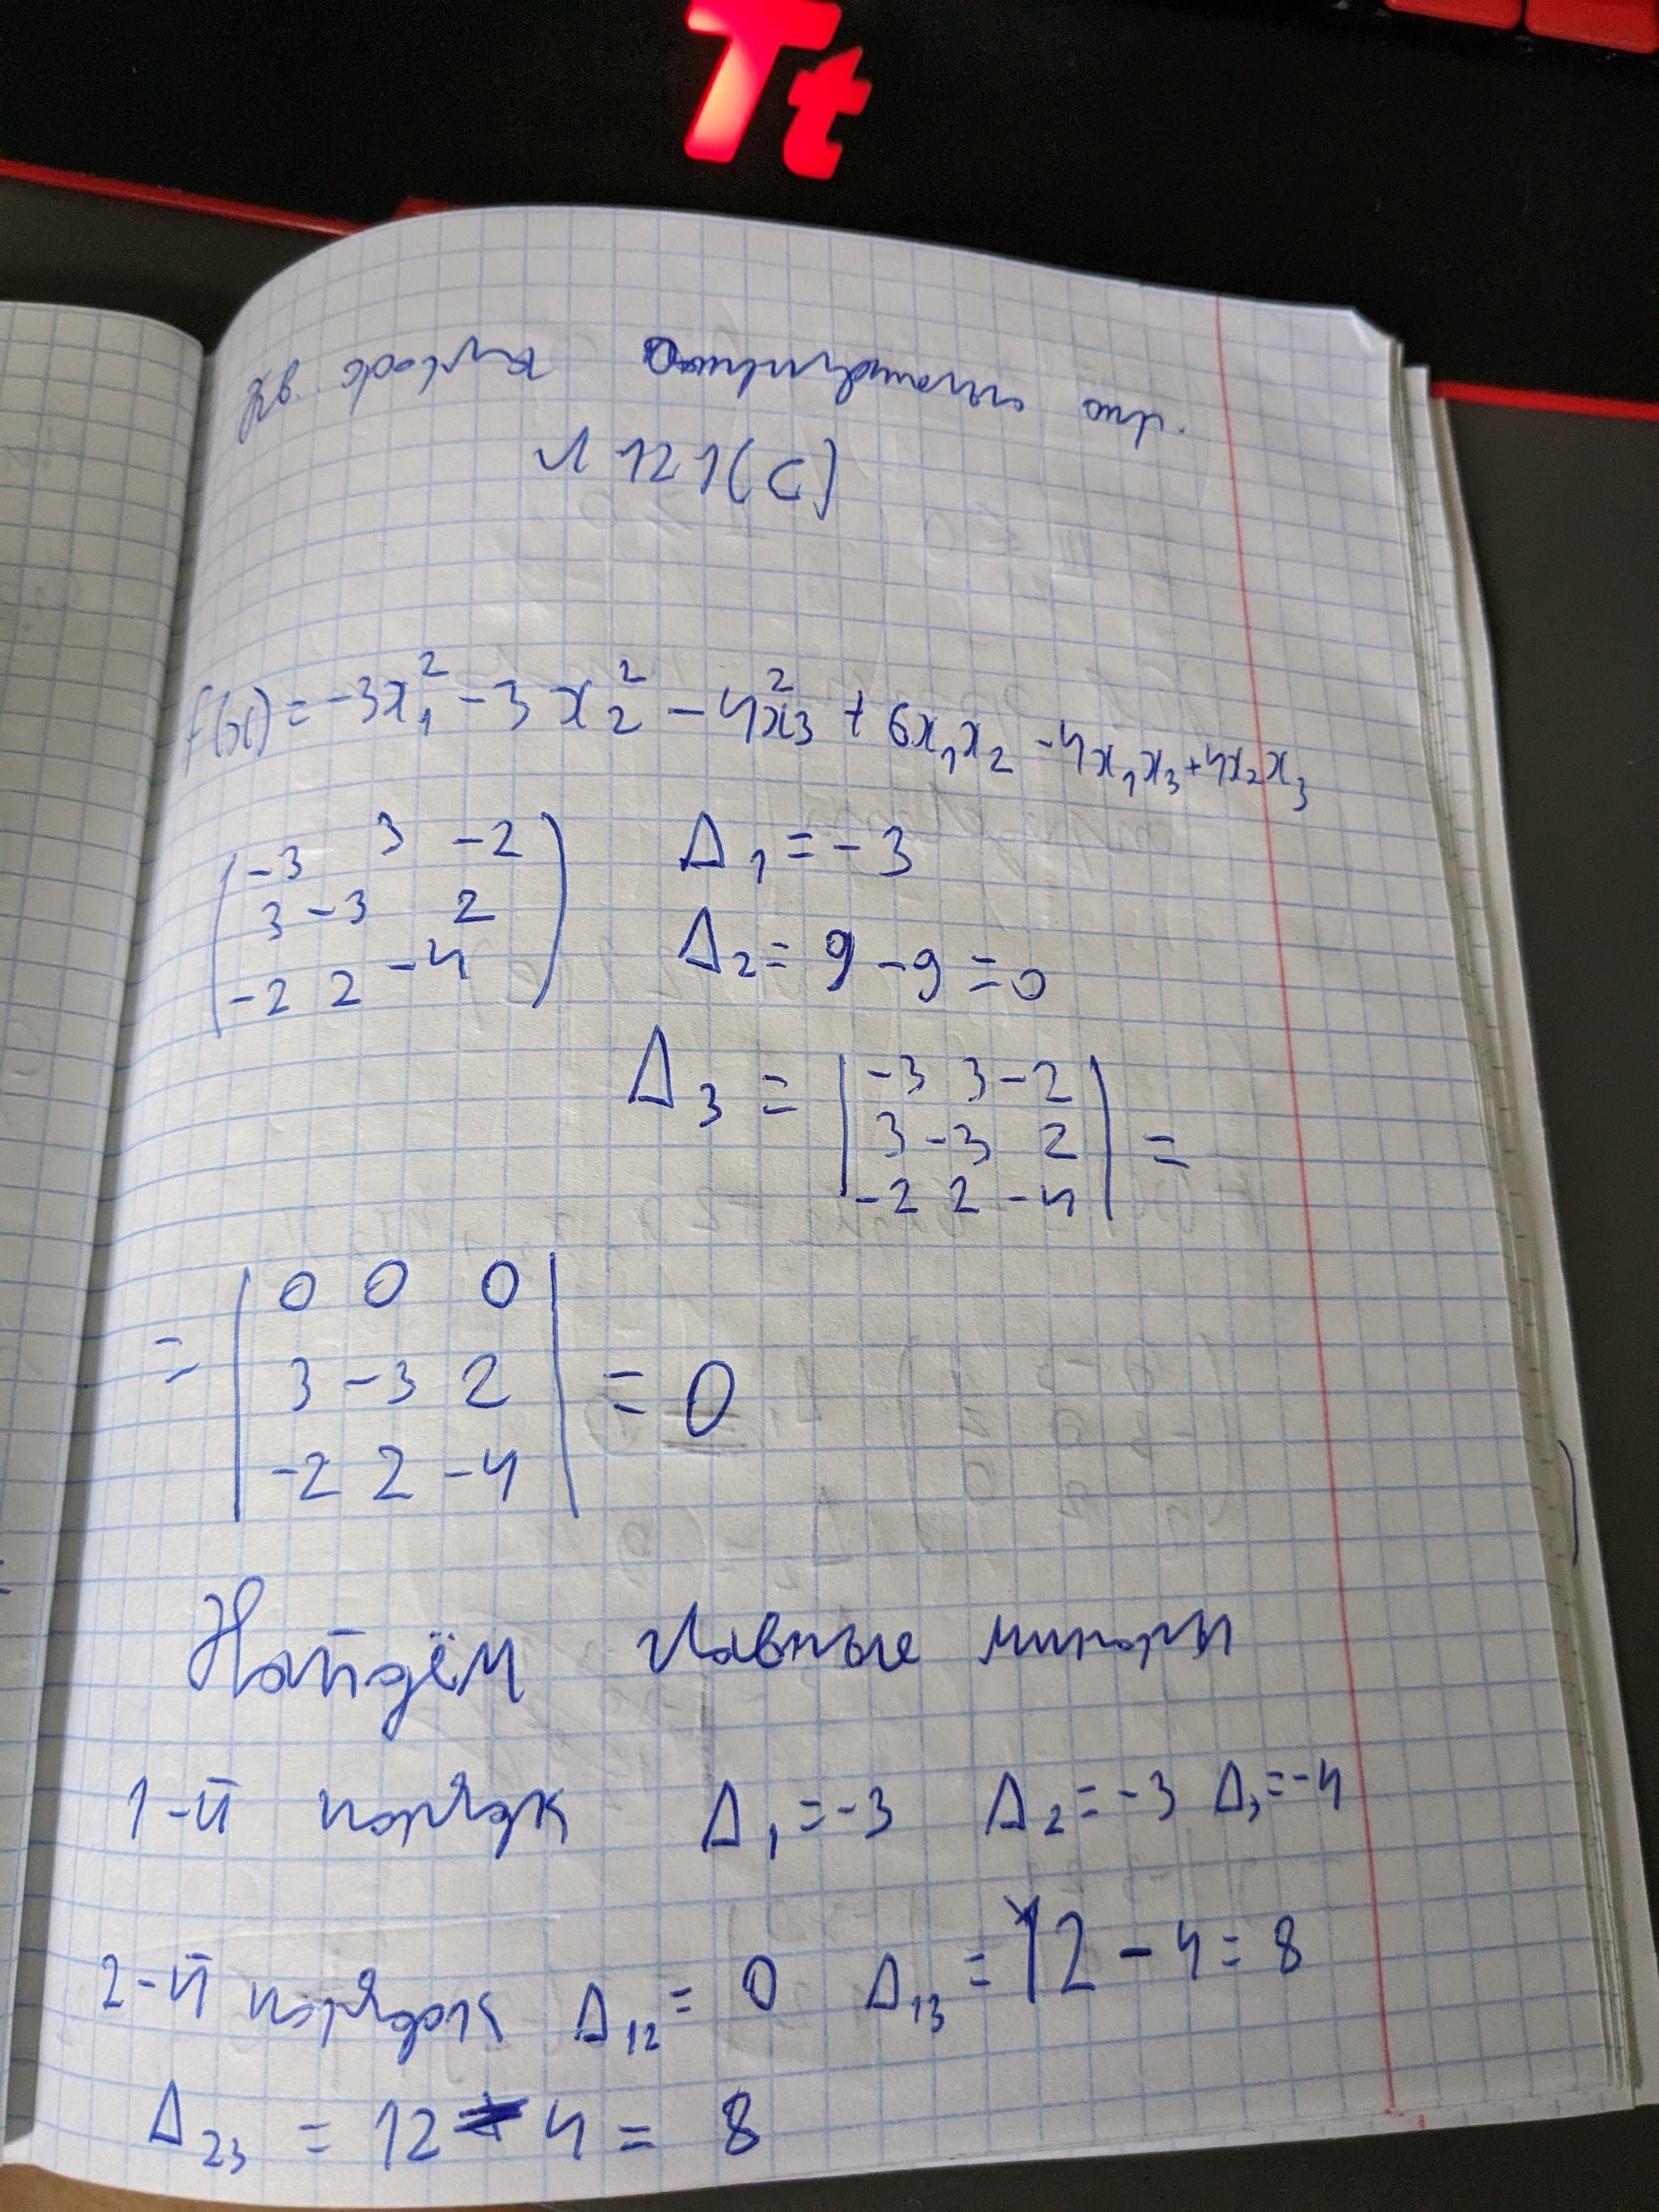 Tt
Кв. форма отрицательно опр.
№ 121(c)
f(x) = -3x₁² - 3x₂² - 4x₃² + 6x₁x₂ - 4x₁x₃ + 4x₂x₃
( -3 3 -2 ) Δ₁ = -3
( 3 -3 2 ) Δ₂ = 9 - 9 = 0
( -2 2 -4 )
Δ₃ = | -3 3 -2 |
| 3 -3 2 | =
| -2 2 -4 |
| 0 0 0 |
= | 3 -3 2 | = 0
| -2 2 -4 |
Найдём главные миноры
1-й порядк Δ₁ = -3 Δ₂ = -3 Δ₃ = -4
2-й порядок Δ₁₂ = 0 Δ₁₃ = 12 - 4 = 8
Δ₂₃ = 12 - 4 = 8